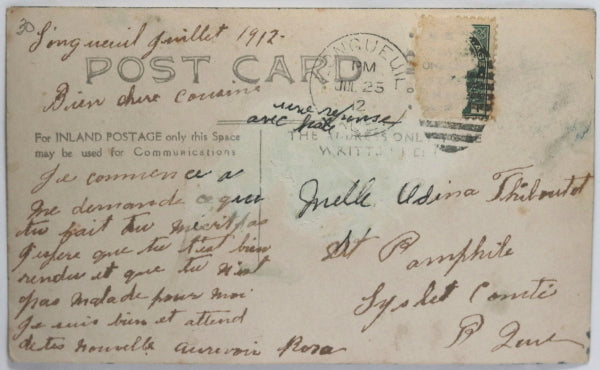 30
Longueuil Juillet 1912-
POST CARD
LONGUEUIL
PM
JUL 25
12
Bien chère cousine
une reponse
avec hate
For INLAND POSTAGE only this Space
may be used for Communications
THE ADDRESS ONLY
WRITTEN
Je commence a
me demandé ce que
tu fait tu m'écrit pas
J'espere que tu t'est bien
rendu et que tu n'est
pas malade pour moi
Je suis bien et attend
de tes nouvelle aurevoir Rosa
Melle Exsina Thiboutot
St Pamphile
Lyslet Comté
P Que